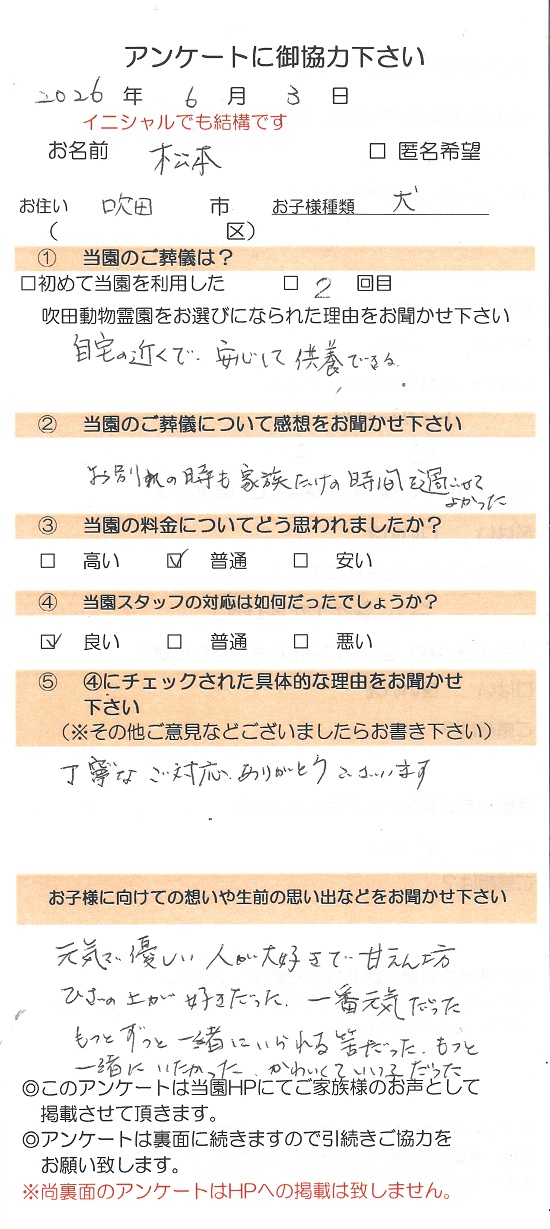 アンケートに御協力下さい
2026 年 6 月 3 日
イニシャルでも結構です
お名前 松本 □ 匿名希望
お住い 吹田 市 お子様種類 犬
( 区)
① 当園のご葬儀は?
□初めて当園を利用した □ 2 回目
吹田動物霊園をお選びになられた理由をお聞かせ下さい
自宅の近くで、安心して供養できる。
② 当園のご葬儀について感想をお聞かせ下さい
お別れの時も家族だけの時間を過ごせて
よかった
③ 当園の料金についてどう思われましたか?
□ 高い ☑ 普通 □ 安い
④ 当園スタッフの対応は如何だったでしょうか?
☑ 良い □ 普通 □ 悪い
⑤ ④にチェックされた具体的な理由をお聞かせ
下さい
(※その他ご意見などございましたらお書き下さい)
丁寧なご対応、ありがとうございます
お子様に向けての想いや生前の思い出などをお聞かせ下さい
元気で優しい人が大好きで甘えん坊
ひざの上が好きだった、一番元気だった
もっとずっと一緒にいられる筈だった、もっと
一緒にいたかった かわいくていい子だった
◎このアンケートは当園HPにてご家族様のお声として
掲載させて頂きます。
◎アンケートは裏面に続きますので引続きご協力を
お願い致します。
※尚裏面のアンケートはHPへの掲載は致しません。